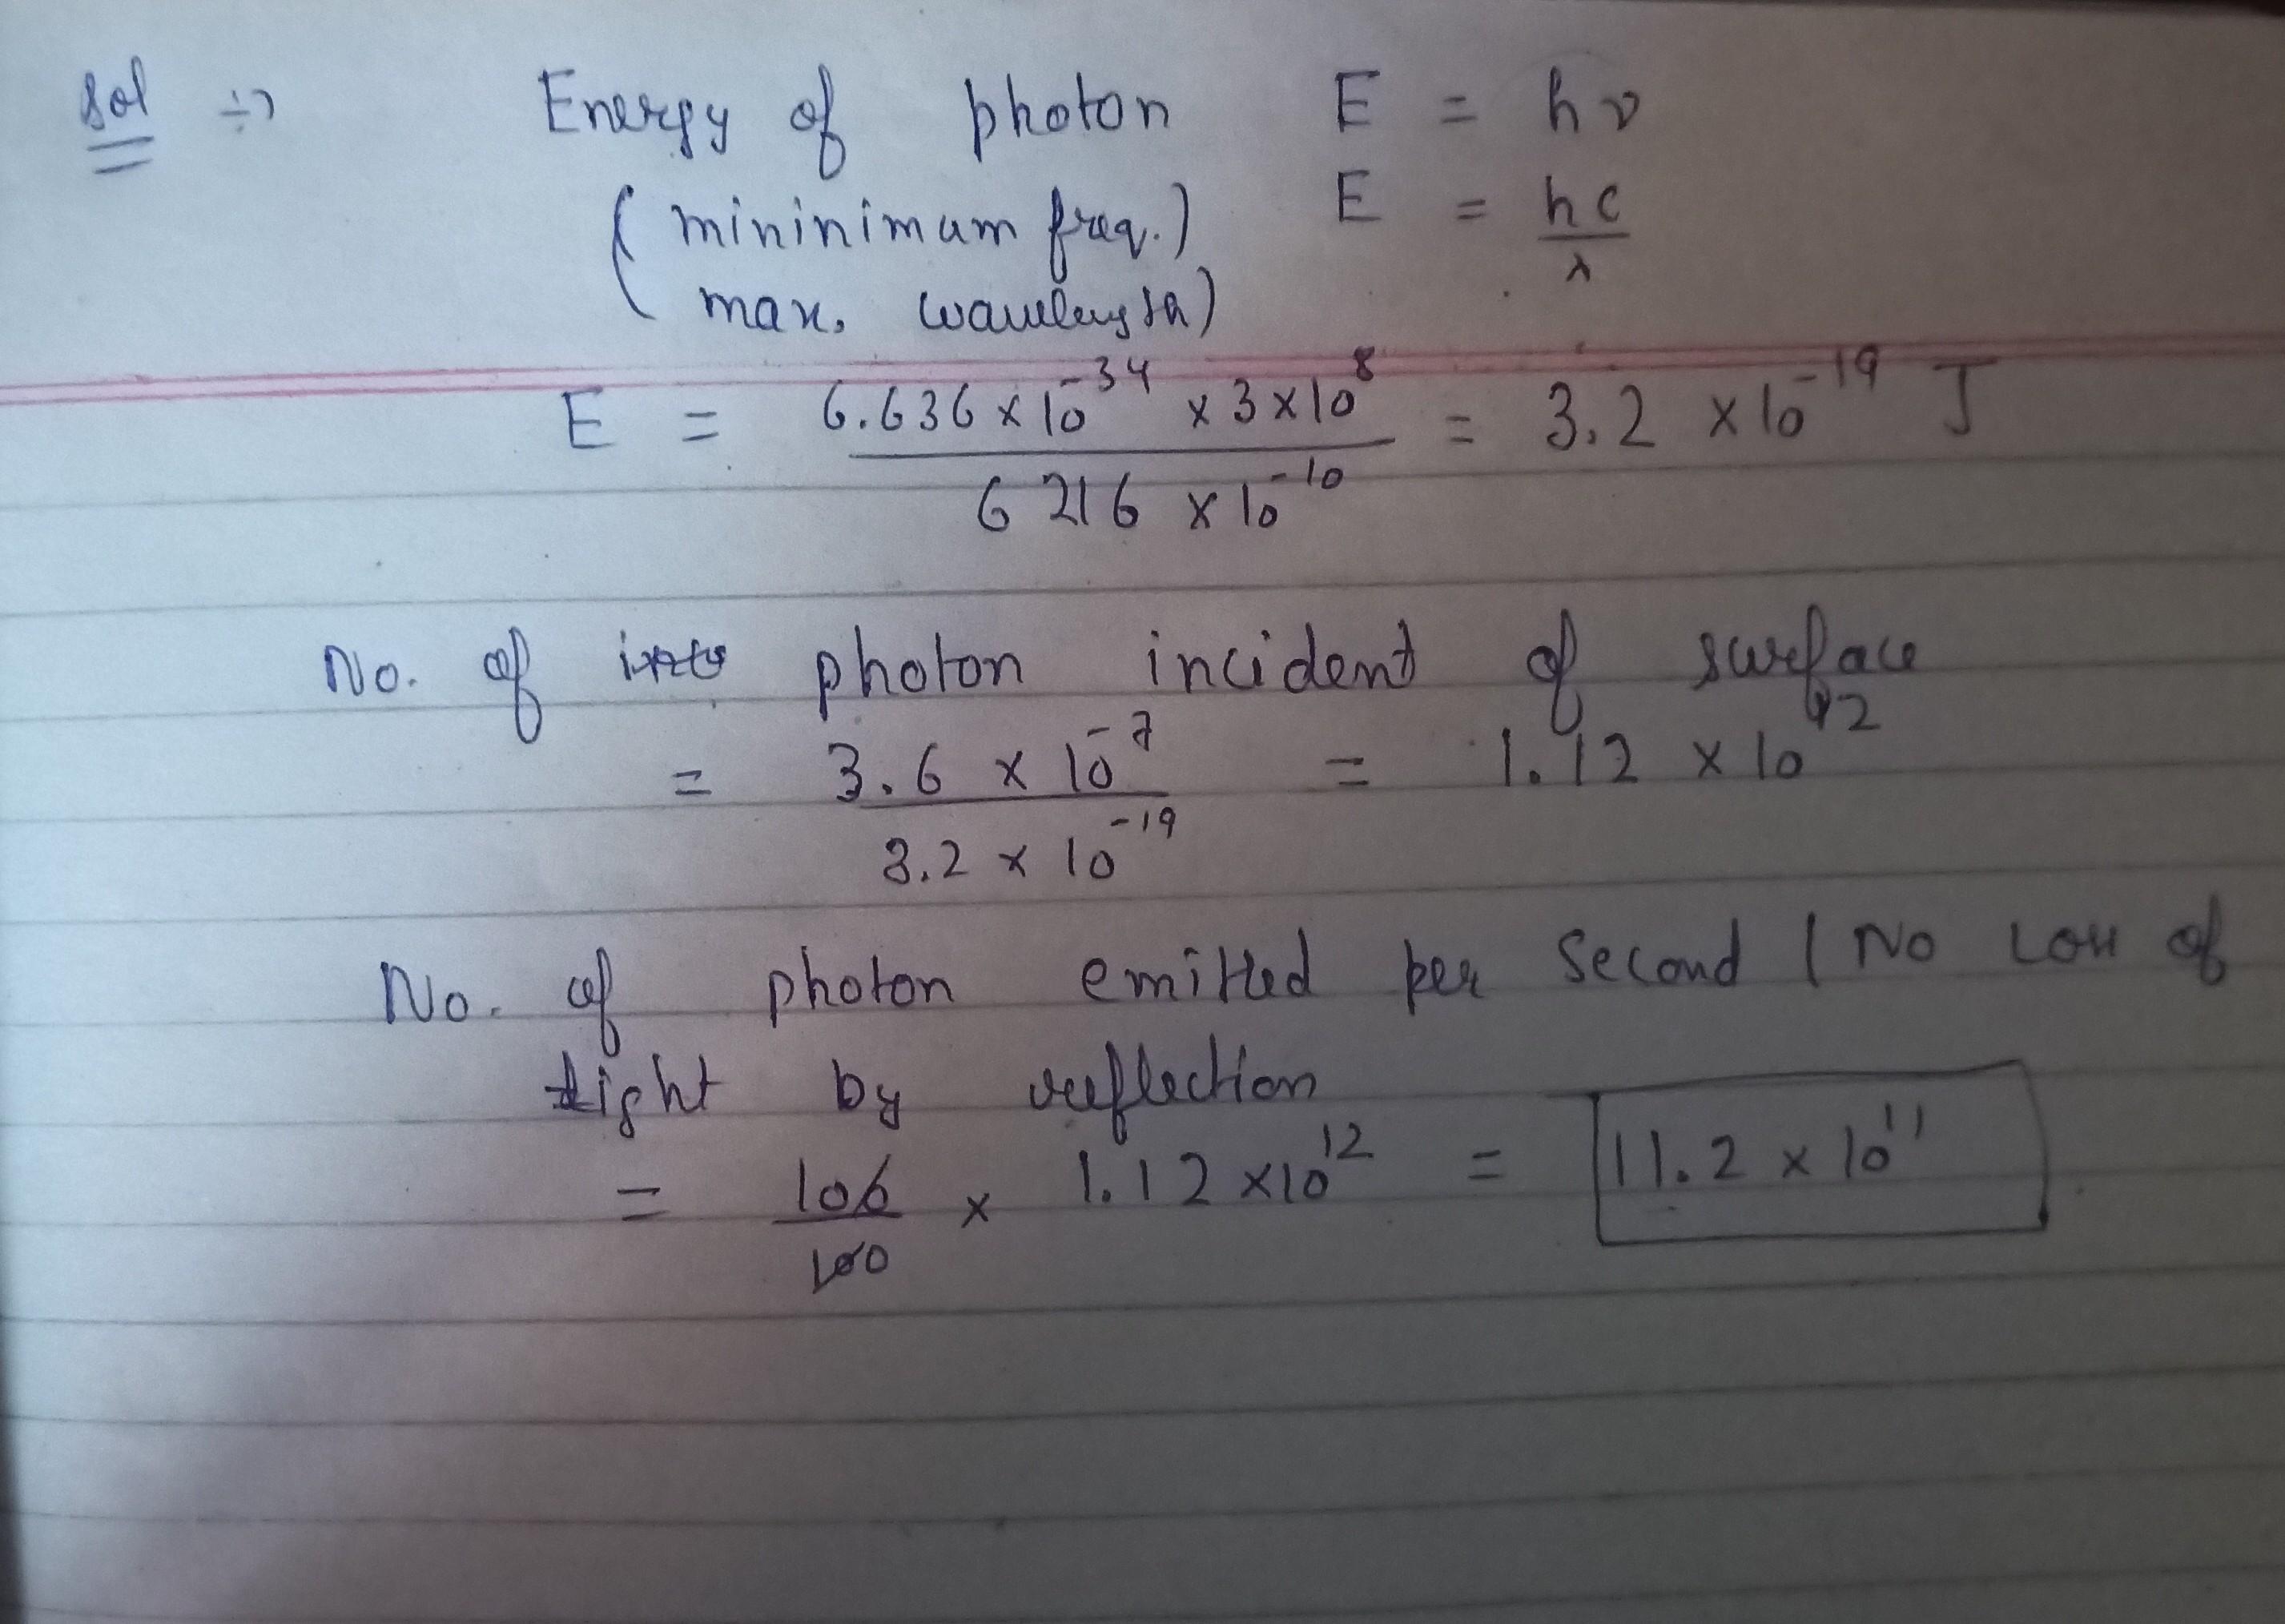 Sol ÷> Energy of photon E = hν
(mininimum freq.) E = hc/λ
(max. wavelength)
E = 6.636 x 10^-34 x 3 x 10^8 / 6216 x 10^-10 = 3.2 x 10^-19 J
No. of photon incident of surface
= 3.6 x 10^-7 / 3.2 x 10^-19 = 1.12 x 10^12
No. of photon emitted per second ( No Loss of
light by reflection
= 100/100 x 1.12 x 10^12 = 11.2 x 10^11